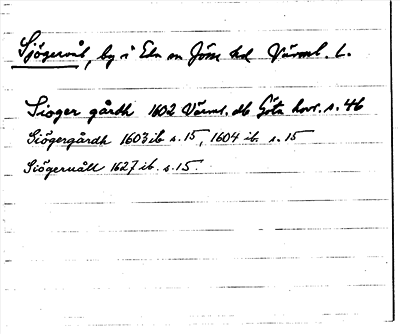 Sjögervål, by i Eda sn Jösse hd Värml. l.
Sioger gårdh 1602 Värml. db Göta hovr. s. 46
Siögergårdh 1603 ib s. 15, 1604 ib. s. 15
Siögeruåll 1627 ib. s. 15.